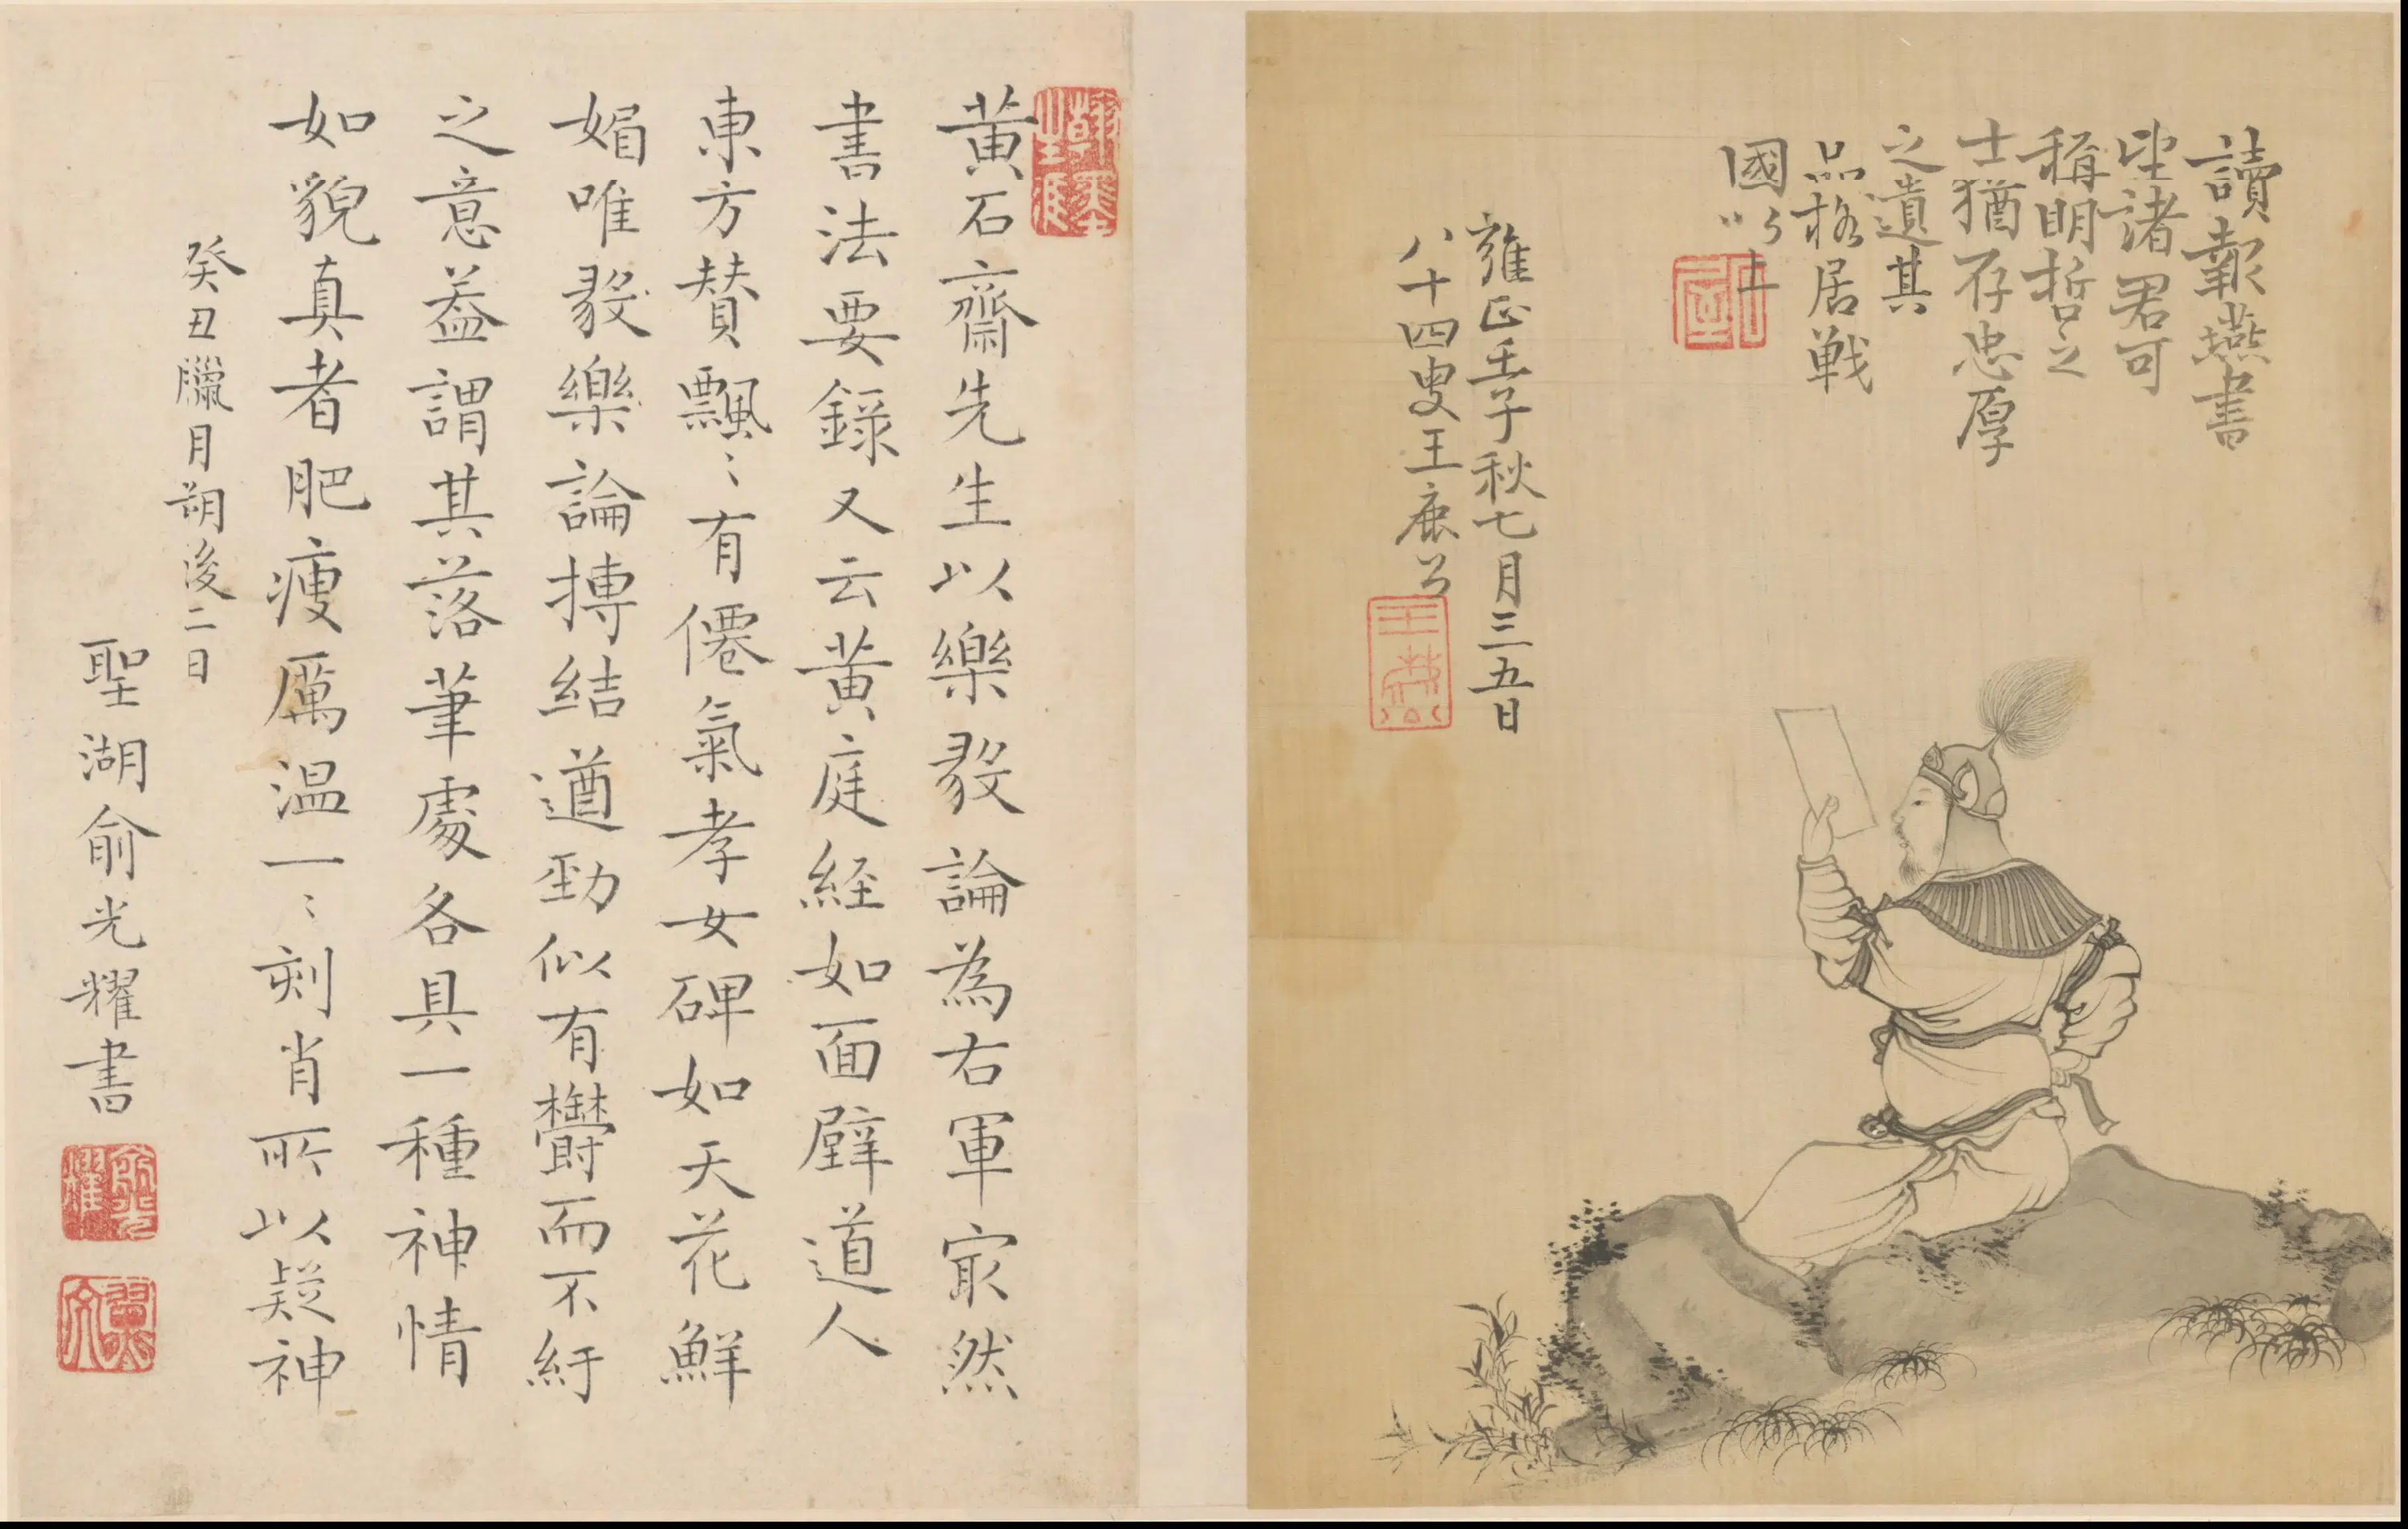 讀報燕書
望諸君可
稱明哲之
士猶存忠厚
之遺其
品格居戰
國以上
雍正壬子秋七月三五日
八十四叟王鹿公
黃石齋先生以樂毅論為右軍冣然
書法要錄又云黃庭經如面壁道人
東方贊飄〻有僊氣孝女碑如天花鮮
媚唯毅樂論摶結遒勁似有欝而不紆
之意葢謂其落筆處各具一種神情
如貌真者肥瘦厲温一〻刻肖所以疑神
癸丑臘月朔後二日
聖湖俞光耀書